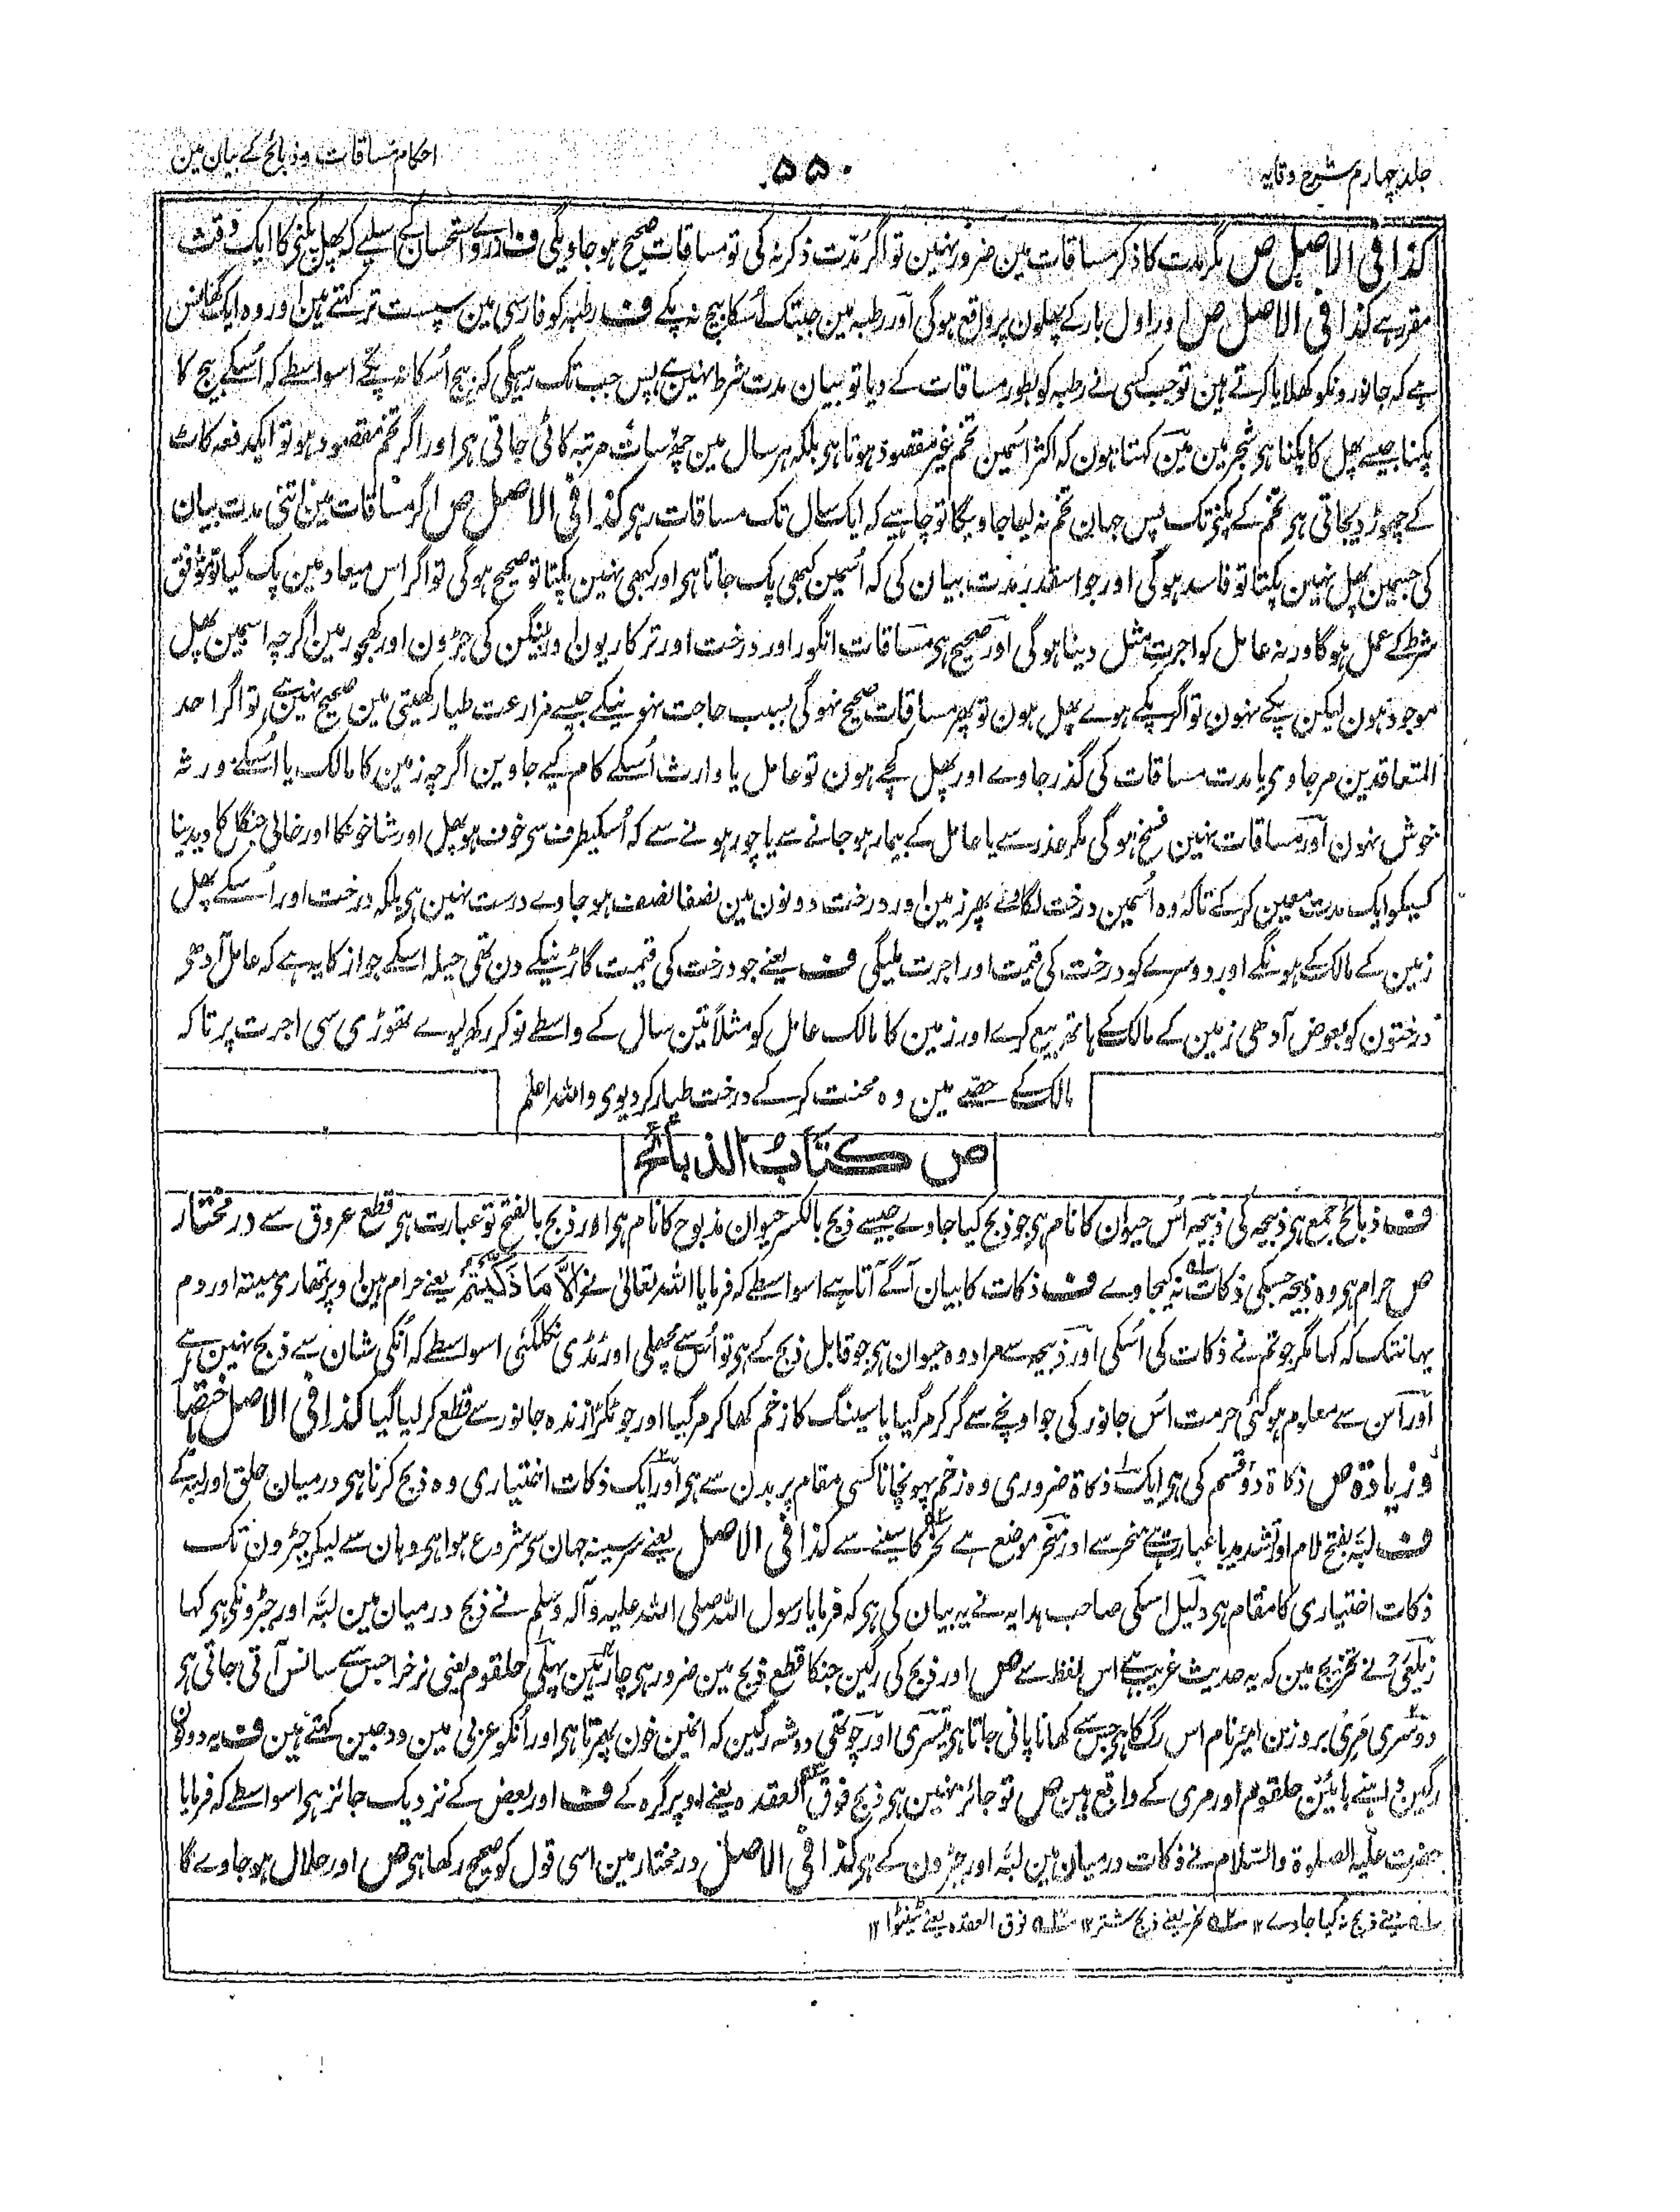 جلد چہارم شرح وقایہ
۵۵۰
احکام مساقات و ذبائح کے بیان مین
کذا فی الاصل ص مگر مدت کا ذکر مساقات مین ضرور نہین تو اگر مدت ذکر نہ کی تو مساقات صحیح ہو جاویگی ف از روے استحسان کے اسلیے کہ پھل پکنے کا ایک وقت
مقرر ہے کذا فی الاصل ص اور اول بار کے پھلون پر واقع ہوگی اور رطبہ مین جبتک اُسکا بیج نہ پکے ف رطبہ کو فارسی مین سپست تر کہتے ہین اور وہ ایک گھانس
ہے کہ جانورونکو کھلایا کرتے ہین تو جب کسی نے رطبہ کو بطور مساقات کے دیا تو بیان مدت شرط نہین ہے پس جب تک رہیگی کہ بیج اُسکا نہ پکے اسواسطے کہ اُسکے بیج کا
پکنا جیسے پھل کا پکنا ہی شجر مین مین کہتا ہون کہ اکثر اسمین تخم غیر مقصود ہوتا ہی بلکہ ہر سال مین چھ سات مرتبہ کاٹی جاتی ہی اور اگر تخم مقصود ہو تو ایکدفعہ کاٹ
کے چھوڑ دیجاتی ہی تخم کے پکنے تک پس جہان تخم نہ لیا جاویگا تو چاہیے کہ ایک سال تک مساقات رہی کذا فی الاصل ص اگر مساقات مین اتنی مدت بیان
کی جسمین پھل نہین پکتا تو فاسد ہوگی اور جو اسقدر مدت بیان کی کہ اُسمین کبھی پک جاتا ہی اور کبھی نہین پکتا تو صحیح ہوگی تو اگر اس میعاد مین پک گیا تو موافق
شرط کے عمل ہوگا ورنہ عامل کو اجرت مثل دینا ہوگی اور صحیح ہی مساقات انگور اور درخت اور ترکاریون اور بینگن کی جڑون اور کھجور مین اگرچہ اسمین پھل
موجود ہون لیکن پکے نہون تو اگر پکے ہوے پھل ہون تو پھر مساقات صحیح نہوگی بسبب حاجت نہونیکے جیسے مزارعت طیار کھیتی مین صحیح نہین ہے تو اگر احد
المتعاقدین مر جاوی یا مدت مساقات کی گذر جاوے اور پھل کچے ہون تو عامل یا وارث اُسکے کام کیے جاوین اگرچہ زمین کا مالک یا اُسکے ورثہ
خوش نہون اور مساقات نہین فسخ ہوگی مگر عذر سے یا عامل کے بیمار ہو جانے سے یا چور ہونے سے کہ اُسکیطرف سی خوف ہو پھل اور شاخونکا اور خالی جنگل کا دیدینا
کسیکو ایک مدت معین کرکے تاکہ وہ اُسمین درخت لگائے پھر زمین اور درخت دونون مین نصفا نصف ہو جاوے درست نہین ہی بلکہ درخت اور اُسکے پھل
زمین کے مالک کے ہونگے اور دوسرے کو درخت کی قیمت اور اجرت ملیگی ف یعنے جو درخت کی قیمت گاڑنیکے دن تھی حیلہ اسکے جواز کا یہ ہے کہ عامل آدھے
درختون کو بعوض آدھی زمین کے مالک کے ہاتھ بیع کرے اور زمین کا مالک عامل کو مثلاً تین سال کے واسطے نوکر رکھ لیوے تھوڑی سی اجرت پر تاکہ
مالک کے حصے مین وہ محنت کرکے درخت طیار کر دیوی واللہ اعلم
ص کتاب الذبائح
ف ذبائح جمع ہی ذبیحہ کی ذبیحہ اُس حیوان کا نام ہی جو ذبح کیا جاوے جیسے ذبح بالکسر حیوان مذبوح کا نام ہی اور ذبح بالفتح تو عبارت ہی قطع عروق سے درمختار
ص حرام ہی وہ ذبیحہ جسکی ذکات نہ کیجاوے ف ذکات کا بیان آگے آتا ہے اسواسطے کہ فرمایا اللہ تعالی نے اِلَّا مَا ذَکَّیۡتُمۡ یعنے حرام ہین اوپر تمھارے میتہ اور دم
یہانتک کہ کہا مگر جو تم نے ذکات کی اُسکی اور ذبیحہ سے مراد وہ حیوان ہی جو قابل ذبح کے ہی تو اُس سے مچھلی اور ٹڈی نکلگئی اسواسطے کہ اُنکی شان سے ذبح نہین ہے
اور اس سے معلوم ہو گئی حرمت اُس جانور کی جو اونچے سے گر کر مر گیا یا سینگ کا زخم کھا کر مر گیا اور جو ٹکڑا زندہ جانور سے قطع کر لیا گیا کذا فی الاصل اختصاراً
و زیادۃ ص ذکاۃ دو قسم کی ہی ایک ذکاۃ ضروری وہ زخم پہونچانا کسی مقام پر بدن سے ہی اور ایک ذکات اختیاری وہ ذبح کرنا ہی درمیان حلق اور لبہ کے
ف لبّہ بفتح لام اور تشدید با عبارت ہے منحر سے اور منحر موضع ہے نحر کا سینے سے کذا فی الاصل یعنے سر سینہ جہان سی شروع ہوا ہی وہان سے لیکر جبڑون تک
ذکات اختیاری کا مقام ہی دلیل اسکی صاحب ہدایہ نے یہ بیان کی ہی کہ فرمایا رسول اللہ صلی اللہ علیہ وآلہ وسلم نے ذبح درمیان مین لبّہ اور جبڑونکے ہی کہا
زیلعی نے تخریج مین کہ یہ حدیث غریب ہے اس لفظ سے ص اور ذبح کی رگین جنکا قطع ذبح مین ضرور ہی چار ہین پہلی حلقوم یعنی نرخرا جس سے سانس آتی جاتی ہی
دوسری مری بروزن امیر نام اس رگ کا ہی جس سے کھانا پانی جاتا ہی تیسری اور چوتھی دو شہ رگین کہ انمین خون پھرتا ہی اور اُنکو عربی مین ودجین کہتے ہین ف یہ دونون
رگین داہنے بائین حلقوم اور مری کے واقع ہین ص تو جائز نہین ہی ذبح فوق العقدہ یعنے اوپر گرہ کے ف اور بعض کے نزدیک جائز ہی اسواسطے کہ فرمایا
حضرت علیہ الصلوۃ والسلام نے ذکات درمیان مین لبّہ اور جبڑون کے ہی کذا فی الاصل درمختار مین اسی قول کو صحیح رکھا ہی ص اور حلال ہو جاوے گا
سلہ یعنے ذبح نہ کیا جاوے ۱۲ سلہ نحر یعنے ذبح شتر ۱۲ سلہ فوق العقدہ یعنے ٹینٹوا ۱۲